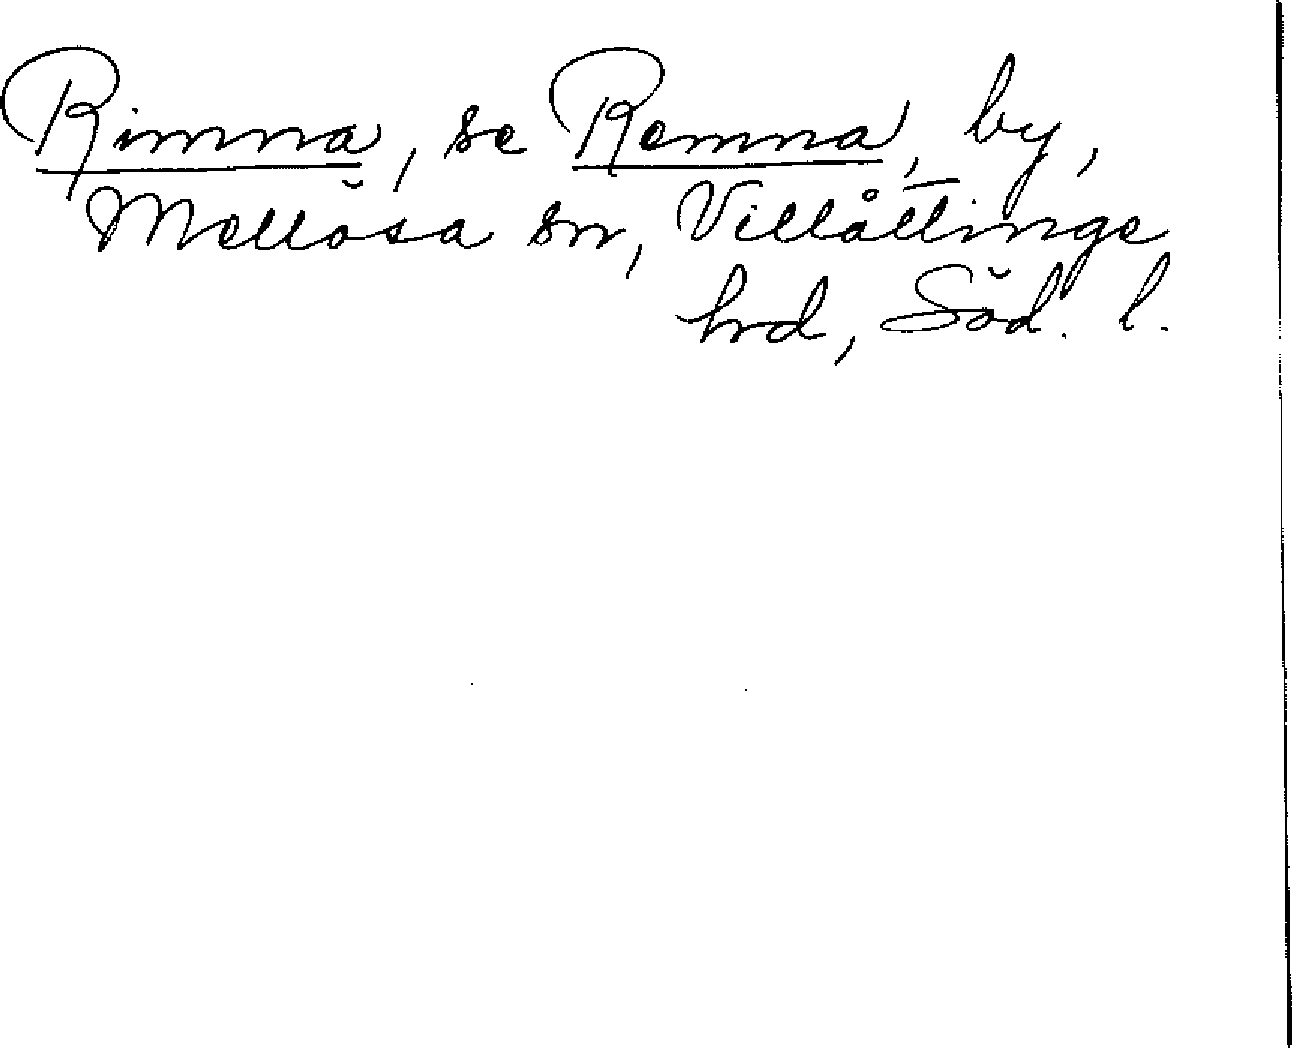 Rimna, se Remna, by,
Mellösa sn, Villåttinge
hrd, Söd. l.